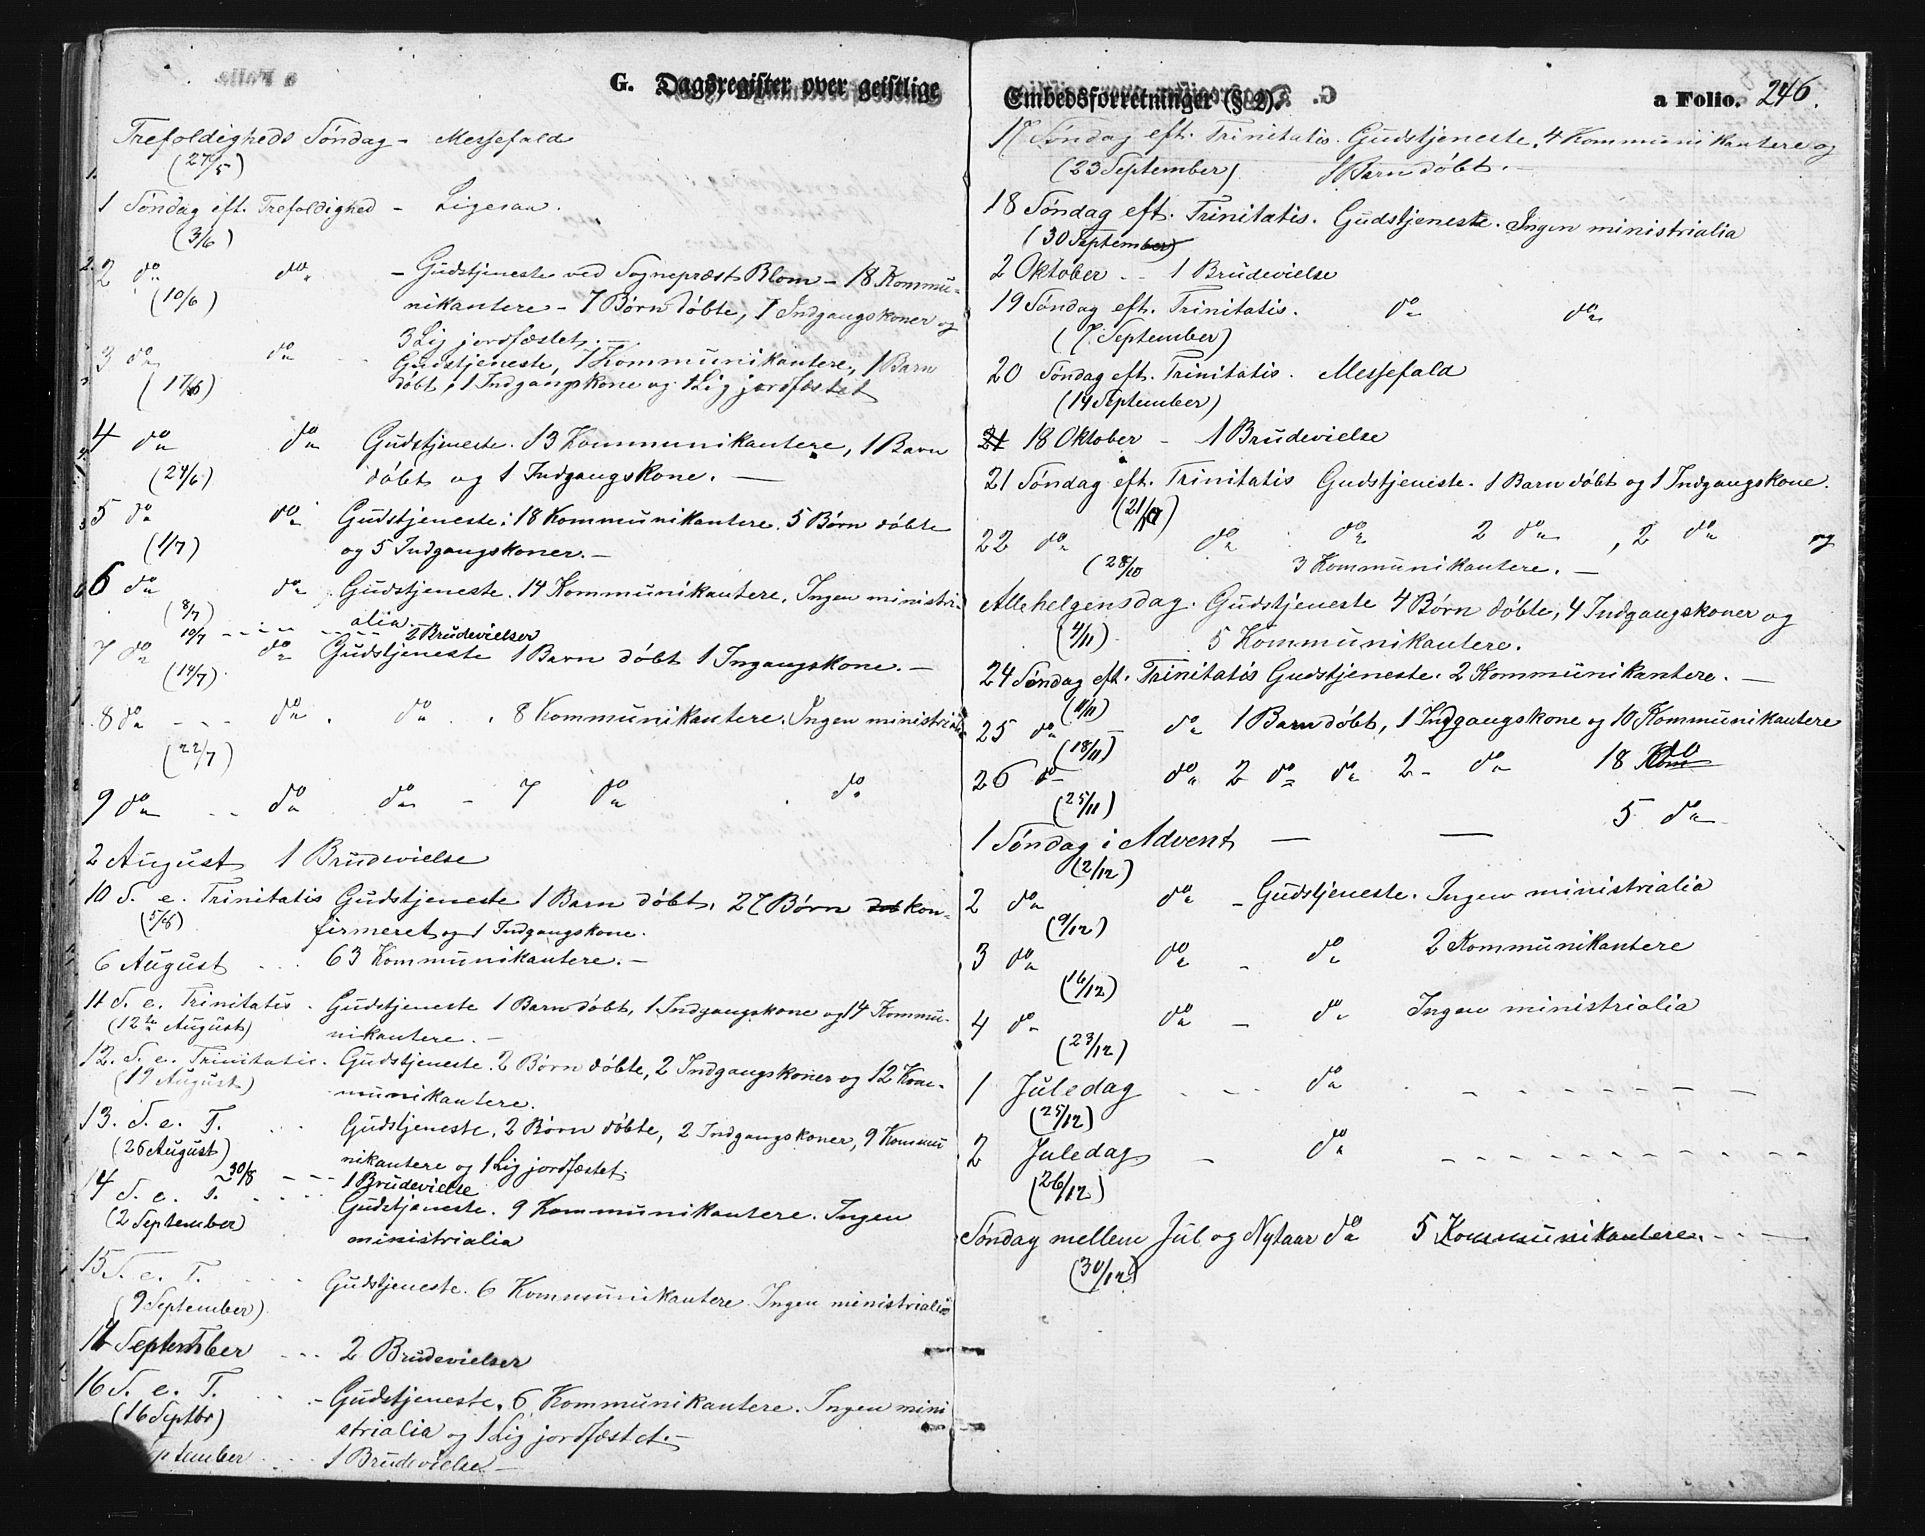 G. Dagsregister over geistlige
Trefoldigheds Søndag - Messefald
(27/5)
1 Søndag eft. Trefoldighed - Ligesaa.
(3/6)
2 do do - Gudstjeneste ved Sognepræst Blom - 18 Kommu-
(10/6) nikantere - 7 Børn døbte, 7 Indgangskoner og
3 Lig jordfæstet. -
3 do do - Gudstjeneste, 7 Kommunikantere, 1 Barn
(17/6) døbt, 1 Indgangskone og 1 Lig jordfæstet
4 do do Gudstjeneste. 13 Kommunikantere, 1 Barn
(24/6) døbt og 1 Indgangskone. -
5 do do Gudstjeneste: 18 Kommunikantere. 5 Børn døbte
(1/7) og 5 Indgangskoner. -
6 do do Gudstjeneste. 14 Kommunikantere. Ingen ministri-
(8/7) alia. -
10/7 - - - - - - - - 2 Brudevielser
7 do do Gudstjeneste 1 Barn døbt 1 Ingangskone. -
(14/7)
8 do - - - do . do . . 8 Kommunikantere. Ingen ministrialia
(22/7)
9 do - - do do - 7 do . do
2 August 1 Brudevielse
10 S. e. Trinitatis Gudstjeneste 1 Barn døbt. 27 Børn kon-
(5/8) firmeret og 1 Indgangskone.
6 August - - - 63 Kommunikantere. -
11 S. e. Trinitatis. Gudstjeneste 1 Barn døbt, 1 Indgangskone og 14 Kommu-
(12te August) nikantere. -
12. S. e. Trinitatis. Gudstjeneste. 2 Børn døbte, 2 Indgangskoner og 12 Kom-
(19 August) munikantere.
13. S. e. T. - - - Gudstjeneste, 2 Børn døbte, 2 Indgangskoner, 9 Kommu
(26 August) nikantere og 1 Lig jordfæstet.
30/8 - - - 1 Brudevielse
14 S. e. T. - - - - Gudstjeneste. 9 Kommunikantere. Ingen
(2 September) ministrialia
15 S. e. T. - - - Gudstjeneste. 6 Kommunikantere. Ingen ministrialia
(9 September)
September - - - 2 Brudevielser
16 S. e. T. - - - Gudstjeneste, 6 Kommunikantere. Ingen mini
(16 Septbr) strialia og 1 Lig jordfæstet. -
ptember - - - 1 Brudevielse -
Embedsforretninger (§ 2). a Folio. 246.
17 Søndag eft. Trinitatis. Gudstjeneste, 4 Kommunikantere og
(23 September) 1 Barn døbt. -
18 Søndag eft. Trinitatis. Gudstjeneste. Ingen ministrialia
(30 September)
2 Oktober - - 1 Brudevielse
19 Søndag eft. Trinitatis. do do
(7. September)
20 Søndag eft. Trinitatis. Messefald
(14 September)
21 18 Oktober - 1 Brudevielse
21 Søndag eft. Trinitatis Gudstjeneste. 1 Barn døbt og 1 Indgangskone.
(21/10)
22 do do do 2 do, 2 do og
(28/10 3 Kommunikantere. -
Allehelgensdag. Gudstjeneste 4 Børn døbte, 4 Indgangskoner og
(4/11) 5 Kommunikantere.
24 Søndag eft. Trinitatis Gudstjeneste. 2 Kommunikantere. -
(11/11)
25 do - do 1 Barn døbt, 1 Indgangskone og 10 Kommunikantere
(18/11)
26 do do 2 do do 2 - do 18 Kom do
(25/11)
1 Søndag i Advent - - 5 do
(2/12)
2 do do - Gudstjeneste. Ingen ministrialia
(9/12)
3 do do - do 2 Kommunikantere
(16/12)
4 do do - do Ingen ministrialia
(23/12)
1 Juledag - - - do . - - - - - - -
(25/12)
2 Juledag - do - - - - - - - - - -
(26/12)
Søndag mellem Jul og Nytaar do 5 Kommunikantere. - - -
(30/12)